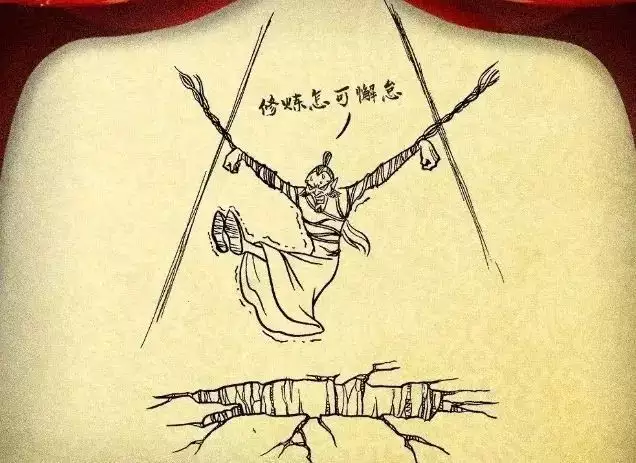 修炼怎可懈怠